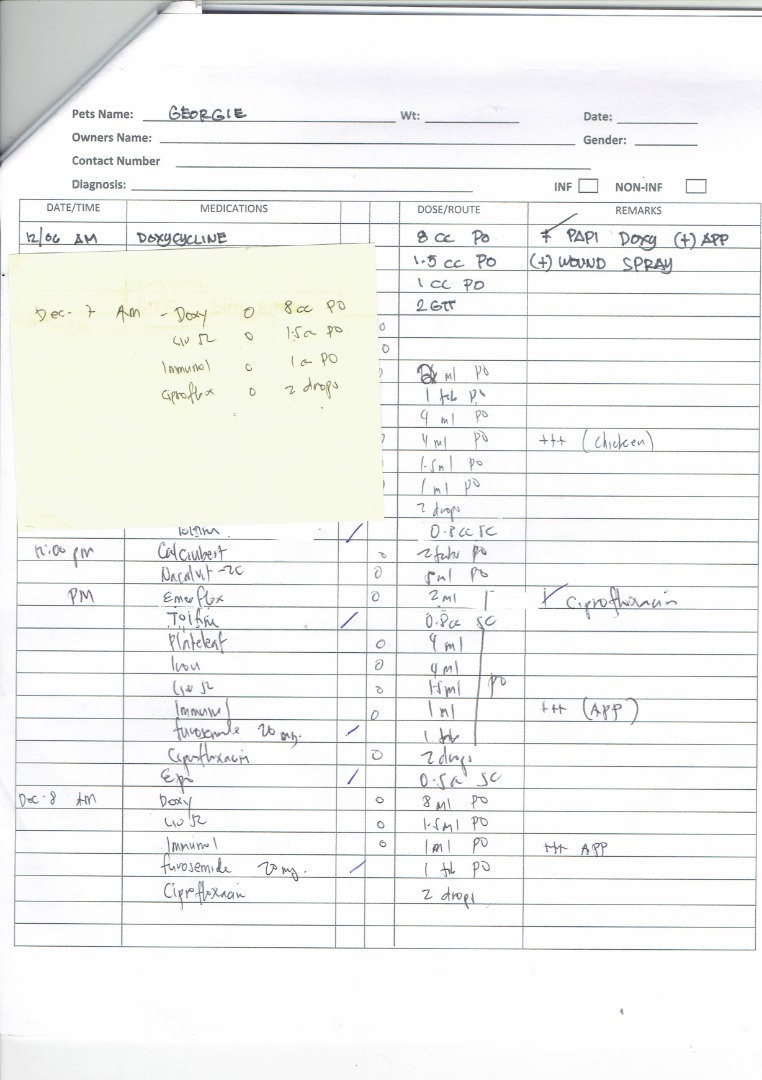 Pets Name: GEORGIE Wt: Date:
Owners Name: Gender:
Contact Number
Diagnosis: INF NON-INF
DATE/TIME MEDICATIONS DOSE/ROUTE REMARKS
12/06 AM DOXYCYCLINE 8 cc PO PAPI DOXY (+) APP
1.5 cc PO (+) WOUND SPRAY
1 cc PO
2 GTT
Dec- 7 AM - Doxy 0 8cc PO
0 1.5cc PO
Immunol 0 1cc PO
Ciproflox 0 2 drops
0
0
ml PO
1 tab PO
4 ml PO
4 ml PO +++ (chicken)
1.5ml PO
1 ml PO
2 drops
0.8cc SC
12:00 pm 0 2 tabs PO
0 5ml PO
PM 0 2 ml Ciprofloxacin
0.8cc SC
Plateleaf 0 4 ml
Iron 0 4 ml
0 1.5ml PO
Immunol 0 1 ml +++ (APP)
furosemide 20 mg. 1 tab
Ciprofloxacin 0 2 drops
Epo 0.5cc SC
Dec-8 AM Doxy 0 8 ml PO
0 1.5ml PO
Immunol 0 1ml PO +++ APP
furosemide 20mg. 1 tab PO
Ciprofloxacin 2 drops